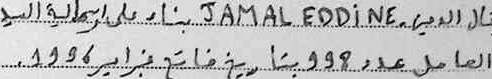 جمال الدين. JAMAL EDDINE بناء على ارسالية السيد
العامل عدد 998 بتاريخ فاتح فبراير 1996.